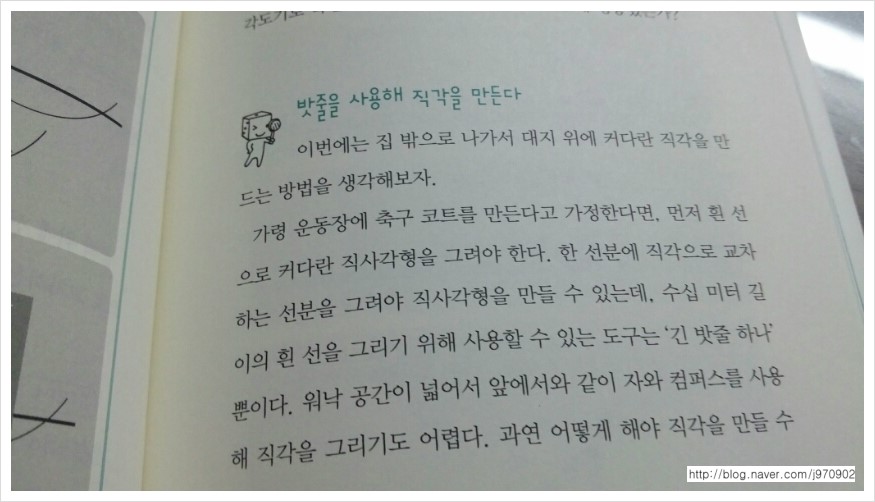 각도기로
밧줄을 사용해 직각을 만든다
이번에는 집 밖으로 나가서 대지 위에 커다란 직각을 만
드는 방법을 생각해보자.
가령 운동장에 축구 코트를 만든다고 가정한다면, 먼저 흰 선
으로 커다란 직사각형을 그려야 한다. 한 선분에 직각으로 교차
하는 선분을 그려야 직사각형을 만들 수 있는데, 수십 미터 길
이의 흰 선을 그리기 위해 사용할 수 있는 도구는 ‘긴 밧줄 하나’
뿐이다. 워낙 공간이 넓어서 앞에서와 같이 자와 컴퍼스를 사용
해 직각을 그리기도 어렵다. 과연 어떻게 해야 직각을 만들 수
http://blog.naver.com/j970902